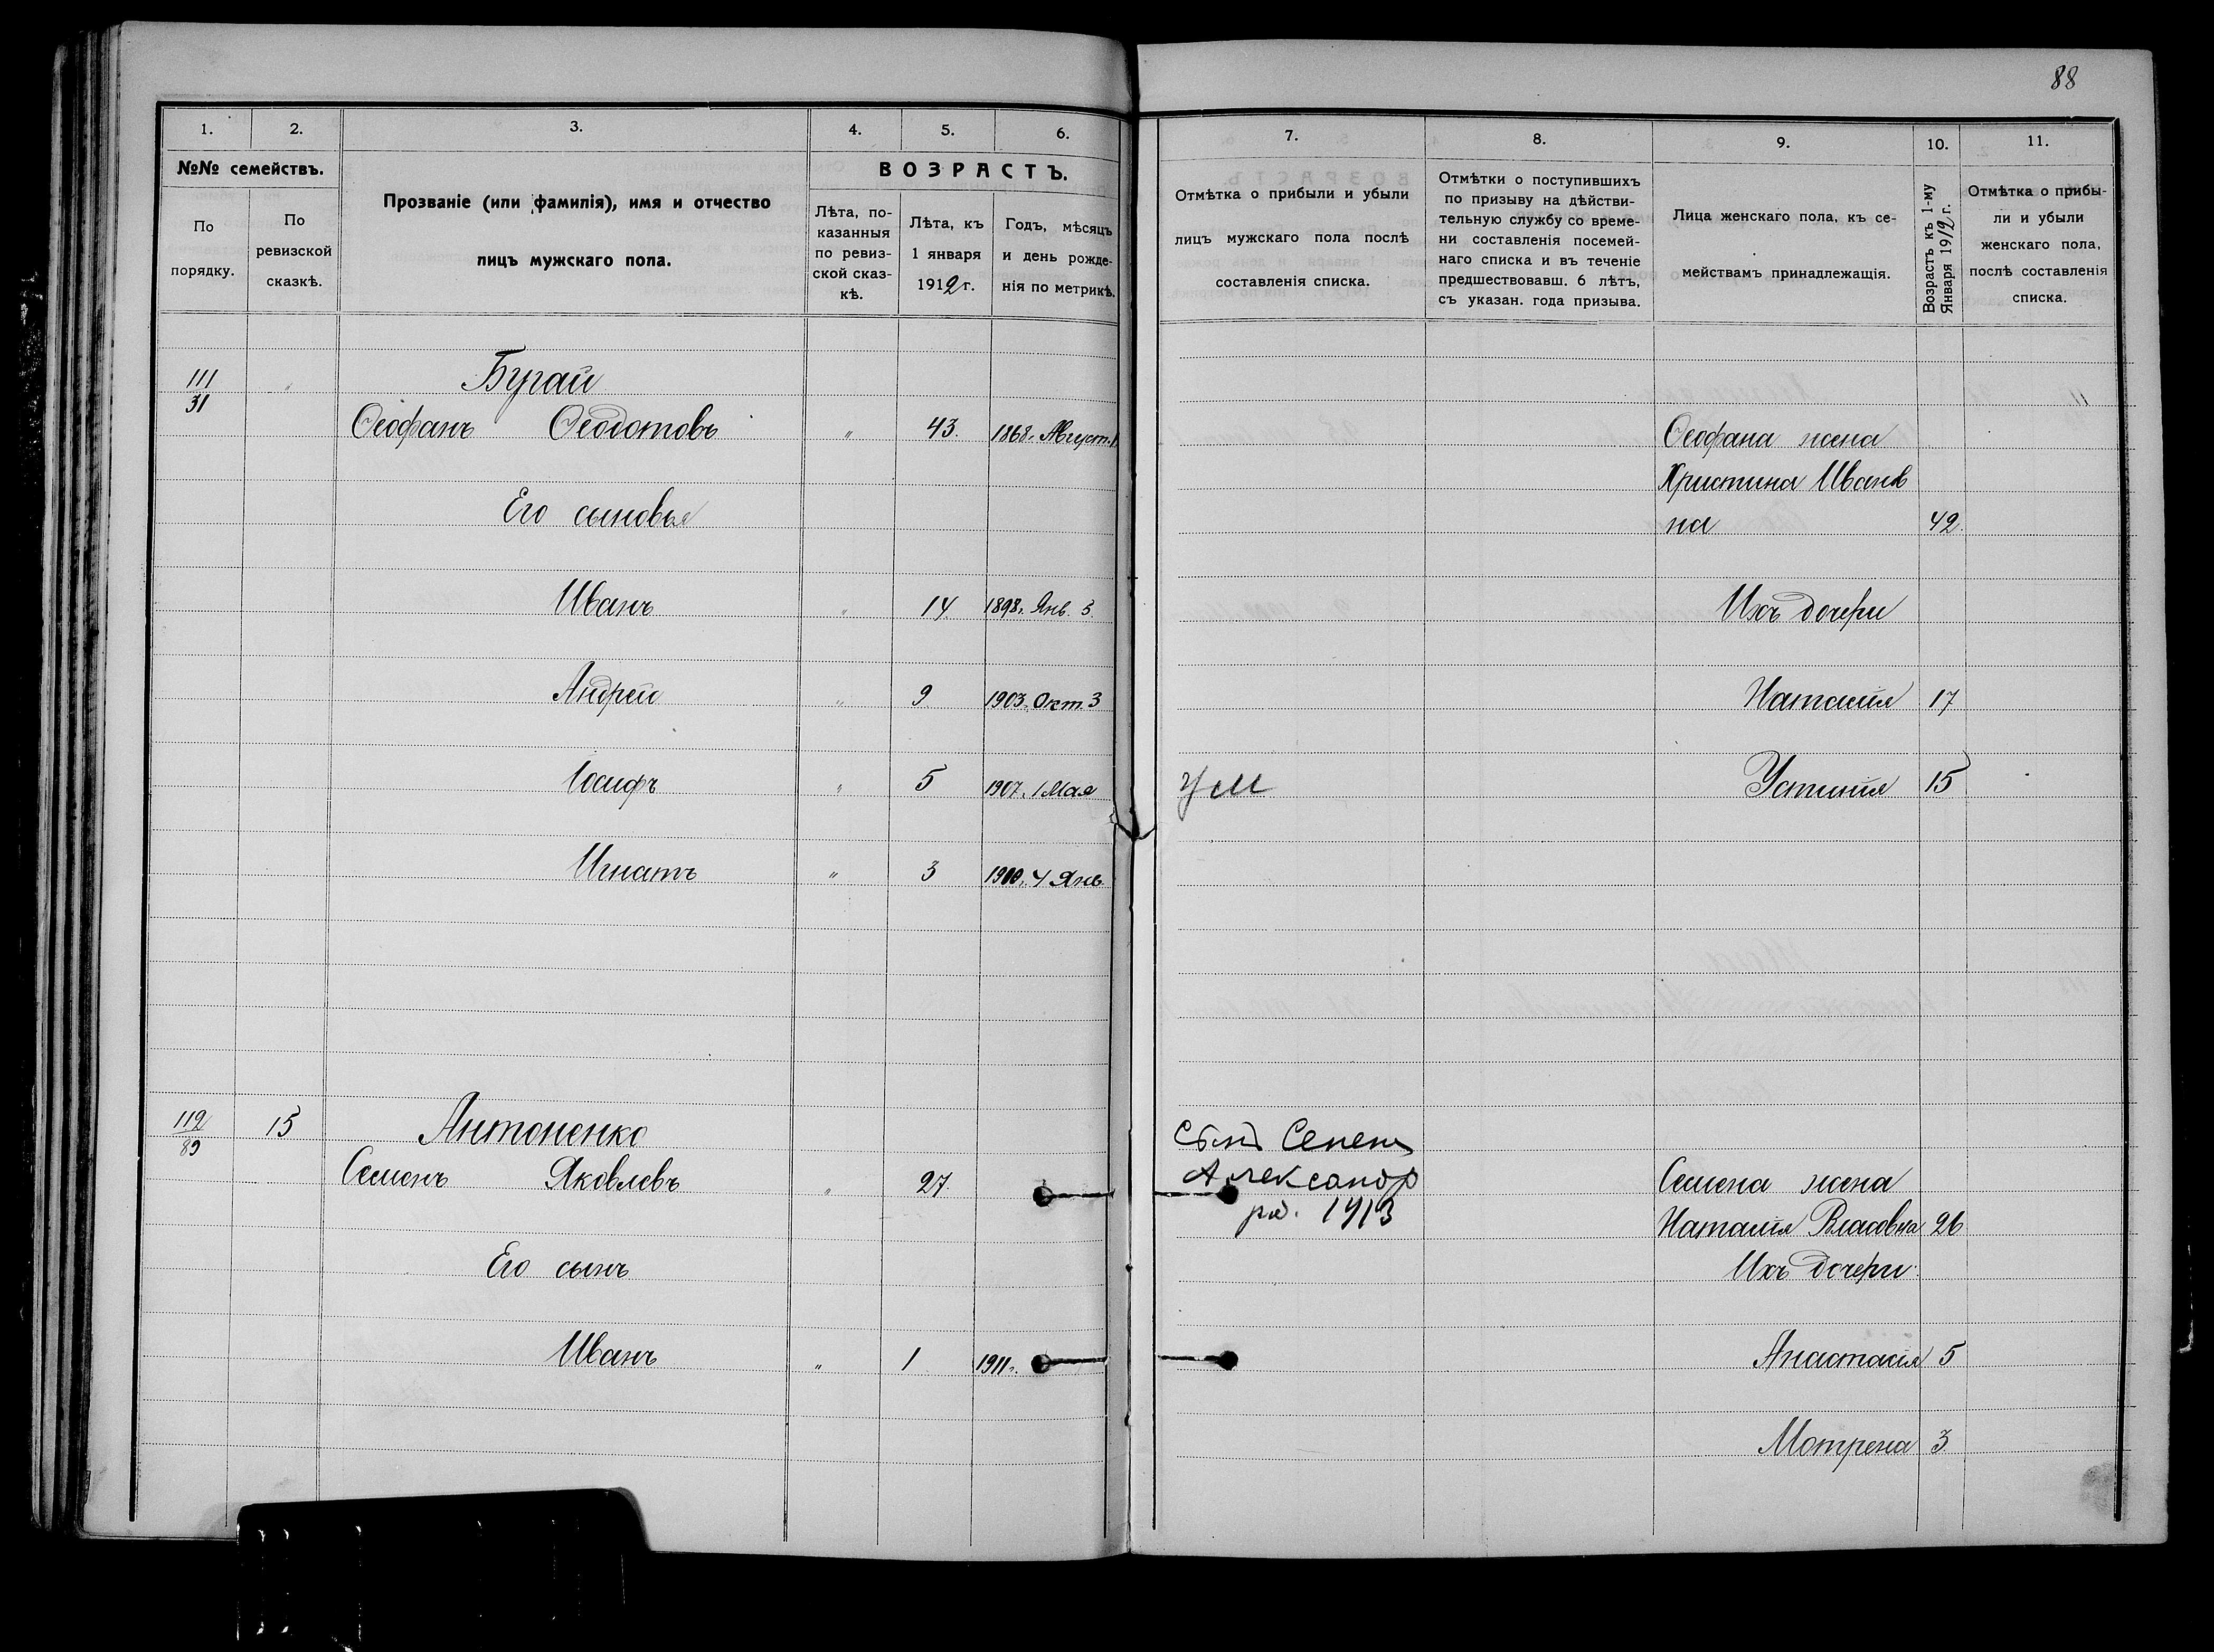 88
1. 2. 3. 4. 5. 6.
№№ семействъ.
По порядку.
По ревизской сказкѣ.
Прозваніе (или фамилія), имя и отчество
лицъ мужскаго пола.
ВОЗРАСТЪ.
Лѣта, по-
казанныя
по ревиз-
ской сказ-
кѣ.
Лѣта, къ
1 января
1912 г.
Годъ, мѣсяцъ
и день рожде-
нія по метрикѣ.
7. 8. 9. 10. 11.
Отмѣтка о прибыли и убыли
лицъ мужскаго пола послѣ
составленія списка.
Отмѣтки о поступившихъ
по призыву на дѣйстви-
тельную службу со време-
ни составленія посемей-
наго списка и въ теченіе
предшествовавш. 6 лѣтъ,
съ указан. года призыва.
Лица женскаго пола, къ се-
мействамъ принадлежащія.
Возрастъ къ 1-му
Января 1912 г.
Отмѣтка о прибы-
ли и убыли
женскаго пола,
послѣ составленія
списка.
111
31
Бугай
Ѳеофанъ Ѳеодотовъ " 43. 1868г. Август.
Его сыновья
Иванъ " 14. 1898г. Янв. 5.
Андрей " 9 1903г. Окт. 3
Іосифъ " 5 1907г. 1 Мая
Игнатъ " 3 4 Янв
Ѳеофана жена
Христина Иванов
на 42.
Ихъ дочери
Наталія 17
ум
Устинія 15
112
89
15
Антоненко
Семенъ Яковлевъ " 27.
Его сынъ
Иванъ " 1 1911г.
Сынъ Семена
Александр
род. 1913
Семена жена
Наталія Власовна 26
Ихъ дочери
Анастасія 5
Мотрена 3